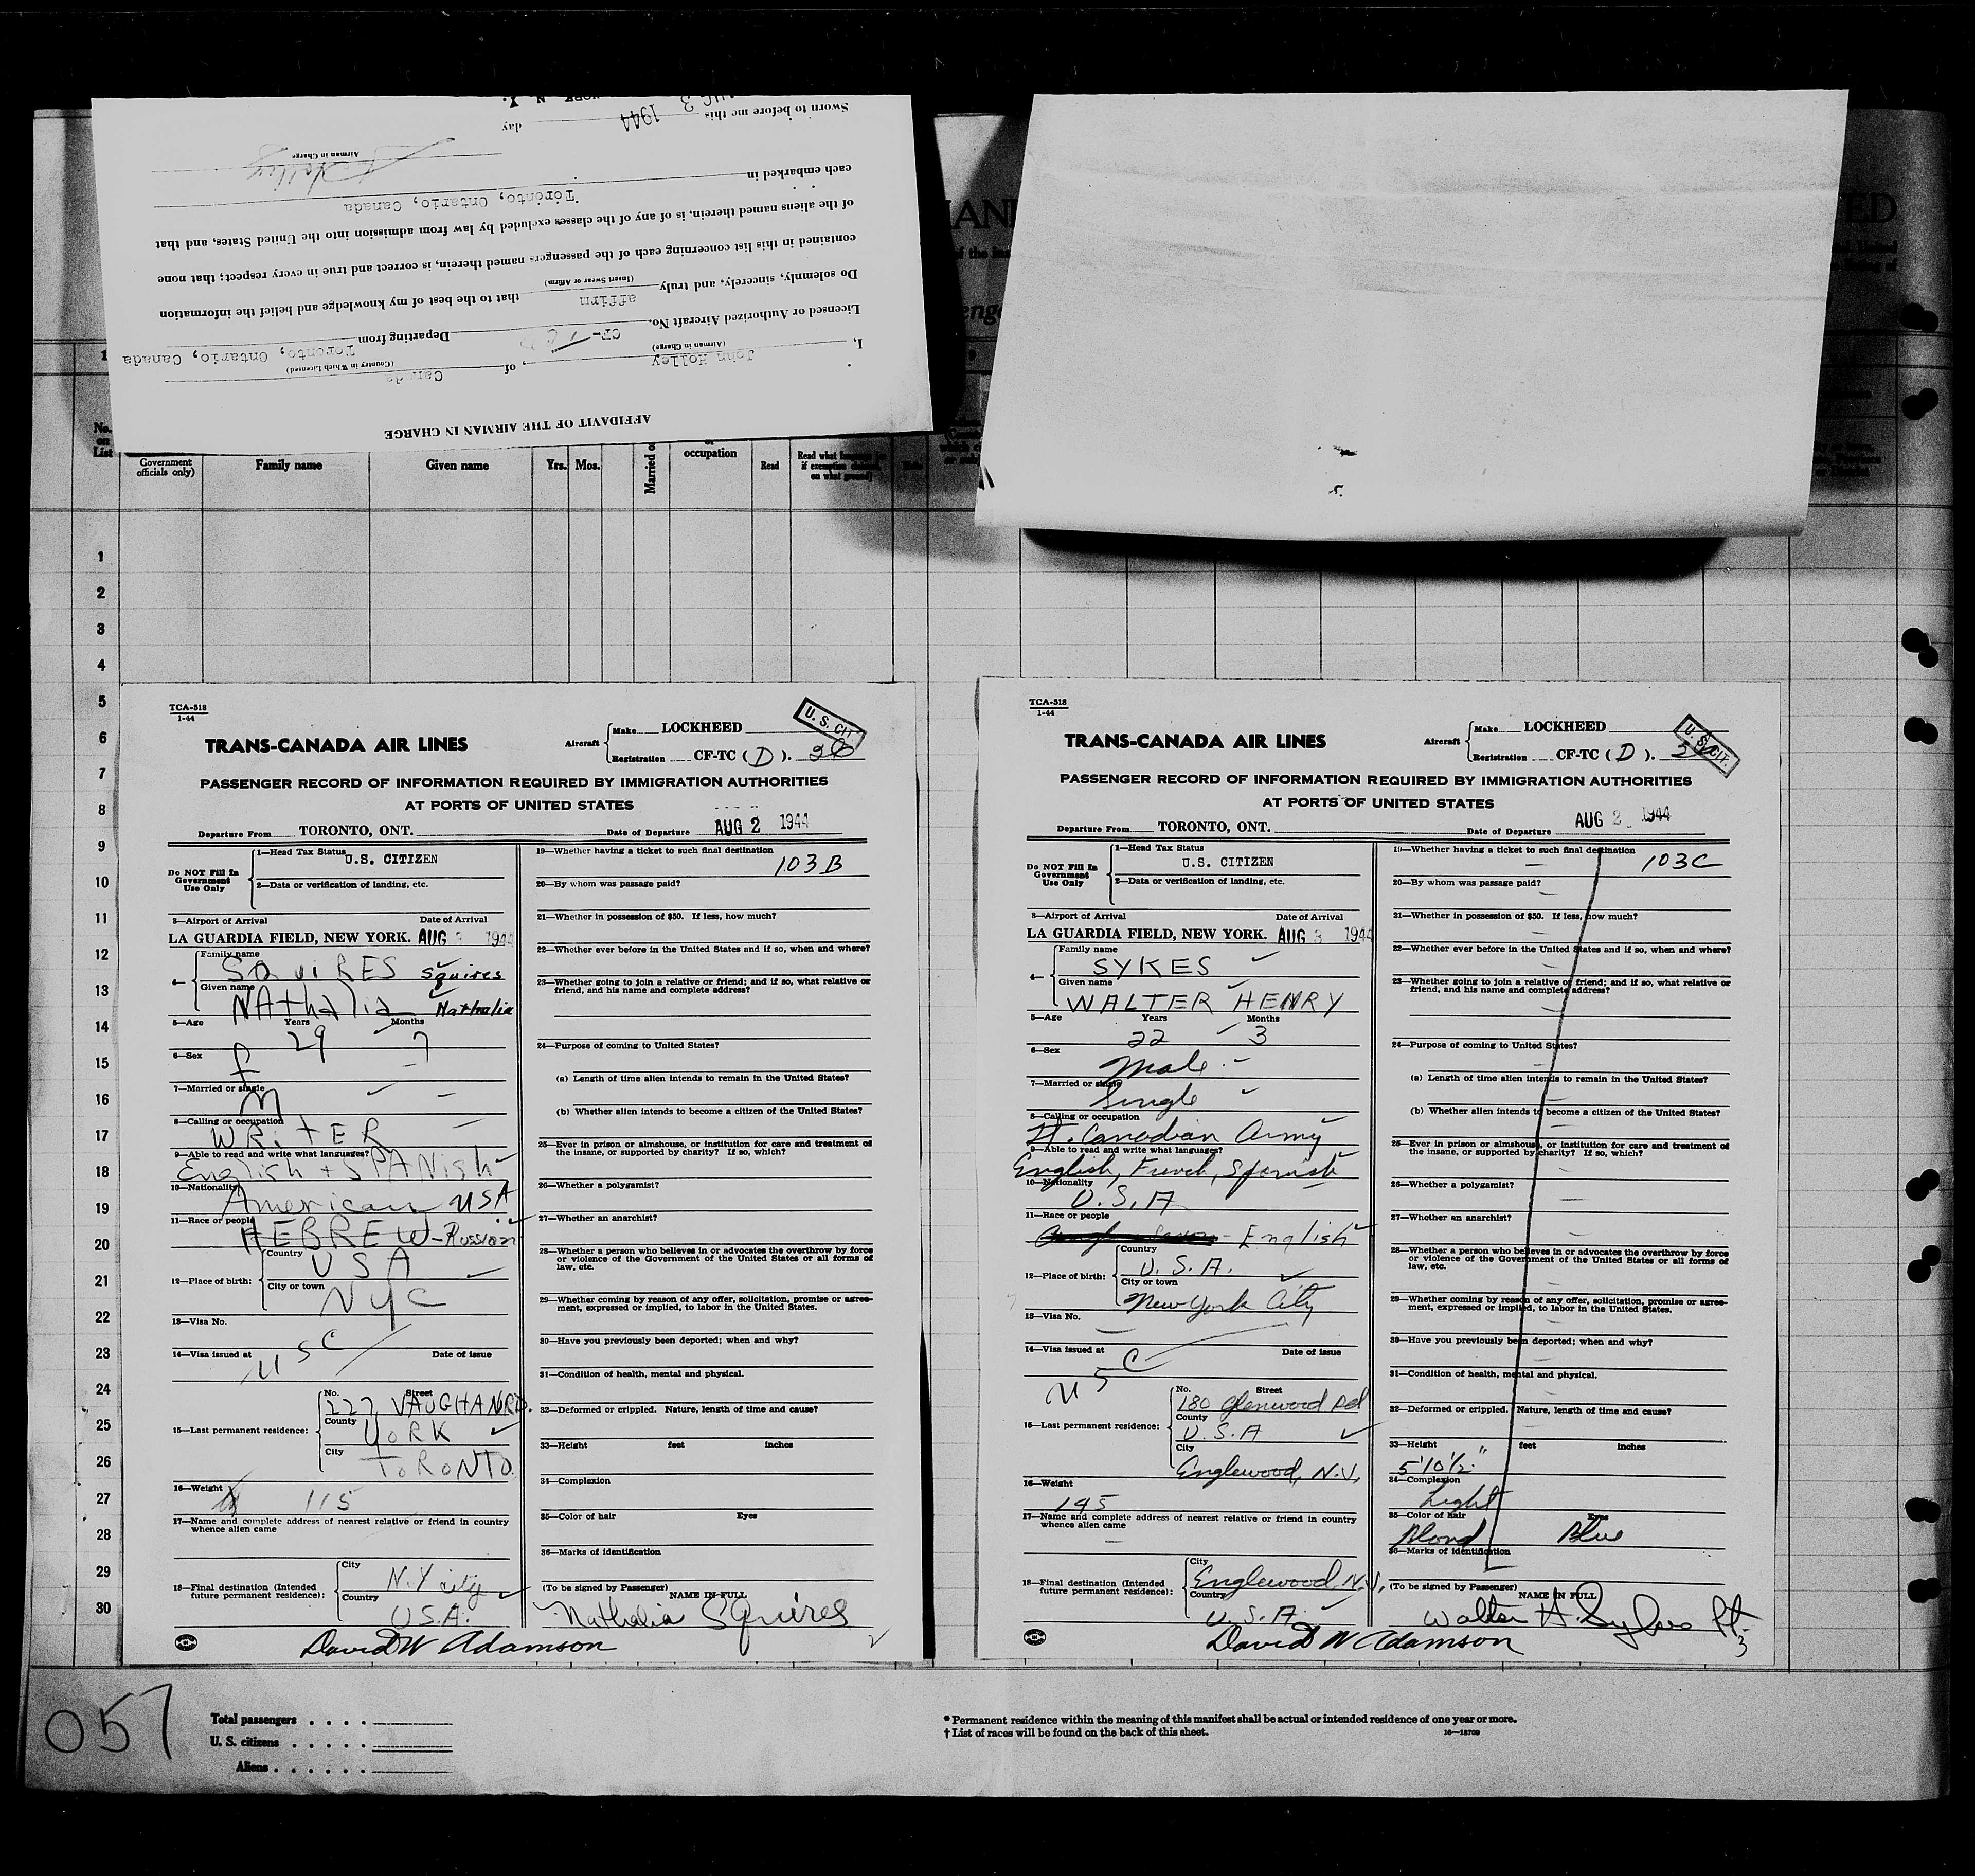 AFFIDAVIT OF THE AIRMAN IN CHARGE
I, John Holley, of Canada
(Airman in Charge) (Country in Which Licensed)
Licensed or Authorized Aircraft No. CF-TC D Departing from Toronto, Ontario, Canada
Do solemnly, sincerely, and truly affirm that to the best of my knowledge and belief the information
(Insert Swear or Affirm)
contained in this list concerning each of the passengers named therein, is correct and true in every respect; that none
of the aliens named therein, is of any of the classes excluded by law from admission into the United States, and that
each embarked in Toronto, Ontario, Canada
Holley
Airman in Charge
Sworn to before me this AUG 3 1944 day
No. on List
Government officials only)
Family name
Given name
Yrs. Mos.
Married or
occupation
Read
Read what language [or, if exemption claimed, on what ground]
1
2
3
4
5
6
7
8
9
10
11
12
13
14
15
16
17
18
19
20
21
22
23
24
25
26
27
28
29
30
TCA-518
1-44
U. S. CIT.
TRANS-CANADA AIR LINES
Aircraft
Make LOCKHEED
Registration CF-TC (D).
PASSENGER RECORD OF INFORMATION REQUIRED BY IMMIGRATION AUTHORITIES
AT PORTS OF UNITED STATES
Departure From TORONTO, ONT. Date of Departure AUG 2 1944
Do NOT Fill In Government Use Only
1—Head Tax Status U.S. CITIZEN
2—Data or verification of landing, etc.
3—Airport of Arrival Date of Arrival
LA GUARDIA FIELD, NEW YORK. AUG 3 1944
4— Family name
SQUIRES Squires
Given name
NAthalia Nathalia
5—Age Years 29 Months 7
6—Sex f
7—Married or single M
8—Calling or occupation
WRiTER
9—Able to read and write what languages?
English + SPANish
10—Nationality American USA
11—Race or people HEBREW - Russian
12—Place of birth:
Country USA
City or town NYC
13—Visa No.
USC
14—Visa issued at Date of issue
15—Last permanent residence:
No. Street
227 VAUGHAN RD.
County YORK
City TORONTO
16—Weight 115
17—Name and complete address of nearest relative or friend in country
whence alien came
18—Final destination (Intended
future permanent residence):
City N.Y city
Country U.S.A.
David W Adamson
19—Whether having a ticket to such final destination
103B
20—By whom was passage paid?
21—Whether in possession of $50. If less, how much?
22—Whether ever before in the United States and if so, when and where?
23—Whether going to join a relative or friend; and if so, what relative or
friend, and his name and complete address?
24—Purpose of coming to United States?
(a) Length of time alien intends to remain in the United States?
(b) Whether alien intends to become a citizen of the United States?
25—Ever in prison or almshouse, or institution for care and treatment of
the insane, or supported by charity? If so, which?
26—Whether a polygamist?
27—Whether an anarchist?
28—Whether a person who believes in or advocates the overthrow by force
or violence of the Government of the United States or all forms of
law, etc.
29—Whether coming by reason of any offer, solicitation, promise or agree-
ment, expressed or implied, to labor in the United States.
30—Have you previously been deported; when and why?
31—Condition of health, mental and physical.
32—Deformed or crippled. Nature, length of time and cause?
33—Height feet inches
34—Complexion
35—Color of hair Eyes
36—Marks of identification
(To be signed by Passenger) NAME IN FULL
Nathalia Squires
2
TCA-518
1-44
U. S. CIT.
TRANS-CANADA AIR LINES
Aircraft
Make LOCKHEED
Registration CF-TC (D).
PASSENGER RECORD OF INFORMATION REQUIRED BY IMMIGRATION AUTHORITIES
AT PORTS OF UNITED STATES
Departure From TORONTO, ONT. Date of Departure AUG 2 1944
Do NOT Fill In Government Use Only
1—Head Tax Status
U.S. CITIZEN
2—Data or verification of landing, etc.
3—Airport of Arrival Date of Arrival
LA GUARDIA FIELD, NEW YORK. AUG 3 1944
4— Family name
SYKES
Given name
WALTER HENRY
5—Age Years 22 Months 3
6—Sex Male
7—Married or single
Single
8—Calling or occupation
Lt. Canadian Army
9—Able to read and write what languages?
English, French, Spanish
10—Nationality
U.S.A
11—Race or people
- English
12—Place of birth:
Country U.S.A.
City or town
New York City
13—Visa No.
USC
14—Visa issued at Date of issue
15—Last permanent residence:
No. Street
180 Glenwood Rd
County
U.S.A
City
Englewood, N.J.
16—Weight
145
17—Name and complete address of nearest relative or friend in country
whence alien came
18—Final destination (Intended
future permanent residence):
City Englewood N.J.
Country
U.S.A.
David W Adamson
19—Whether having a ticket to such final destination
103C
20—By whom was passage paid?
21—Whether in possession of $50. If less, how much?
22—Whether ever before in the United States and if so, when and where?
23—Whether going to join a relative or friend; and if so, what relative or
friend, and his name and complete address?
24—Purpose of coming to United States?
(a) Length of time alien intends to remain in the United States?
(b) Whether alien intends to become a citizen of the United States?
25—Ever in prison or almshouse, or institution for care and treatment of
the insane, or supported by charity? If so, which?
26—Whether a polygamist?
27—Whether an anarchist?
28—Whether a person who believes in or advocates the overthrow by force
or violence of the Government of the United States or all forms of
law, etc.
29—Whether coming by reason of any offer, solicitation, promise or agree-
ment, expressed or implied, to labor in the United States.
30—Have you previously been deported; when and why?
31—Condition of health, mental and physical.
32—Deformed or crippled. Nature, length of time and cause?
33—Height feet inches
5'10½"
34—Complexion
Light
35—Color of hair Eyes
Blond Blue
36—Marks of identification
(To be signed by Passenger) NAME IN FULL
Walter H. Sykes Lt.
3
057
Total passengers
U. S. citizens
Aliens
* Permanent residence within the meaning of this manifest shall be actual or intended residence of one year or more.
† List of races will be found on the back of this sheet.
16—18709